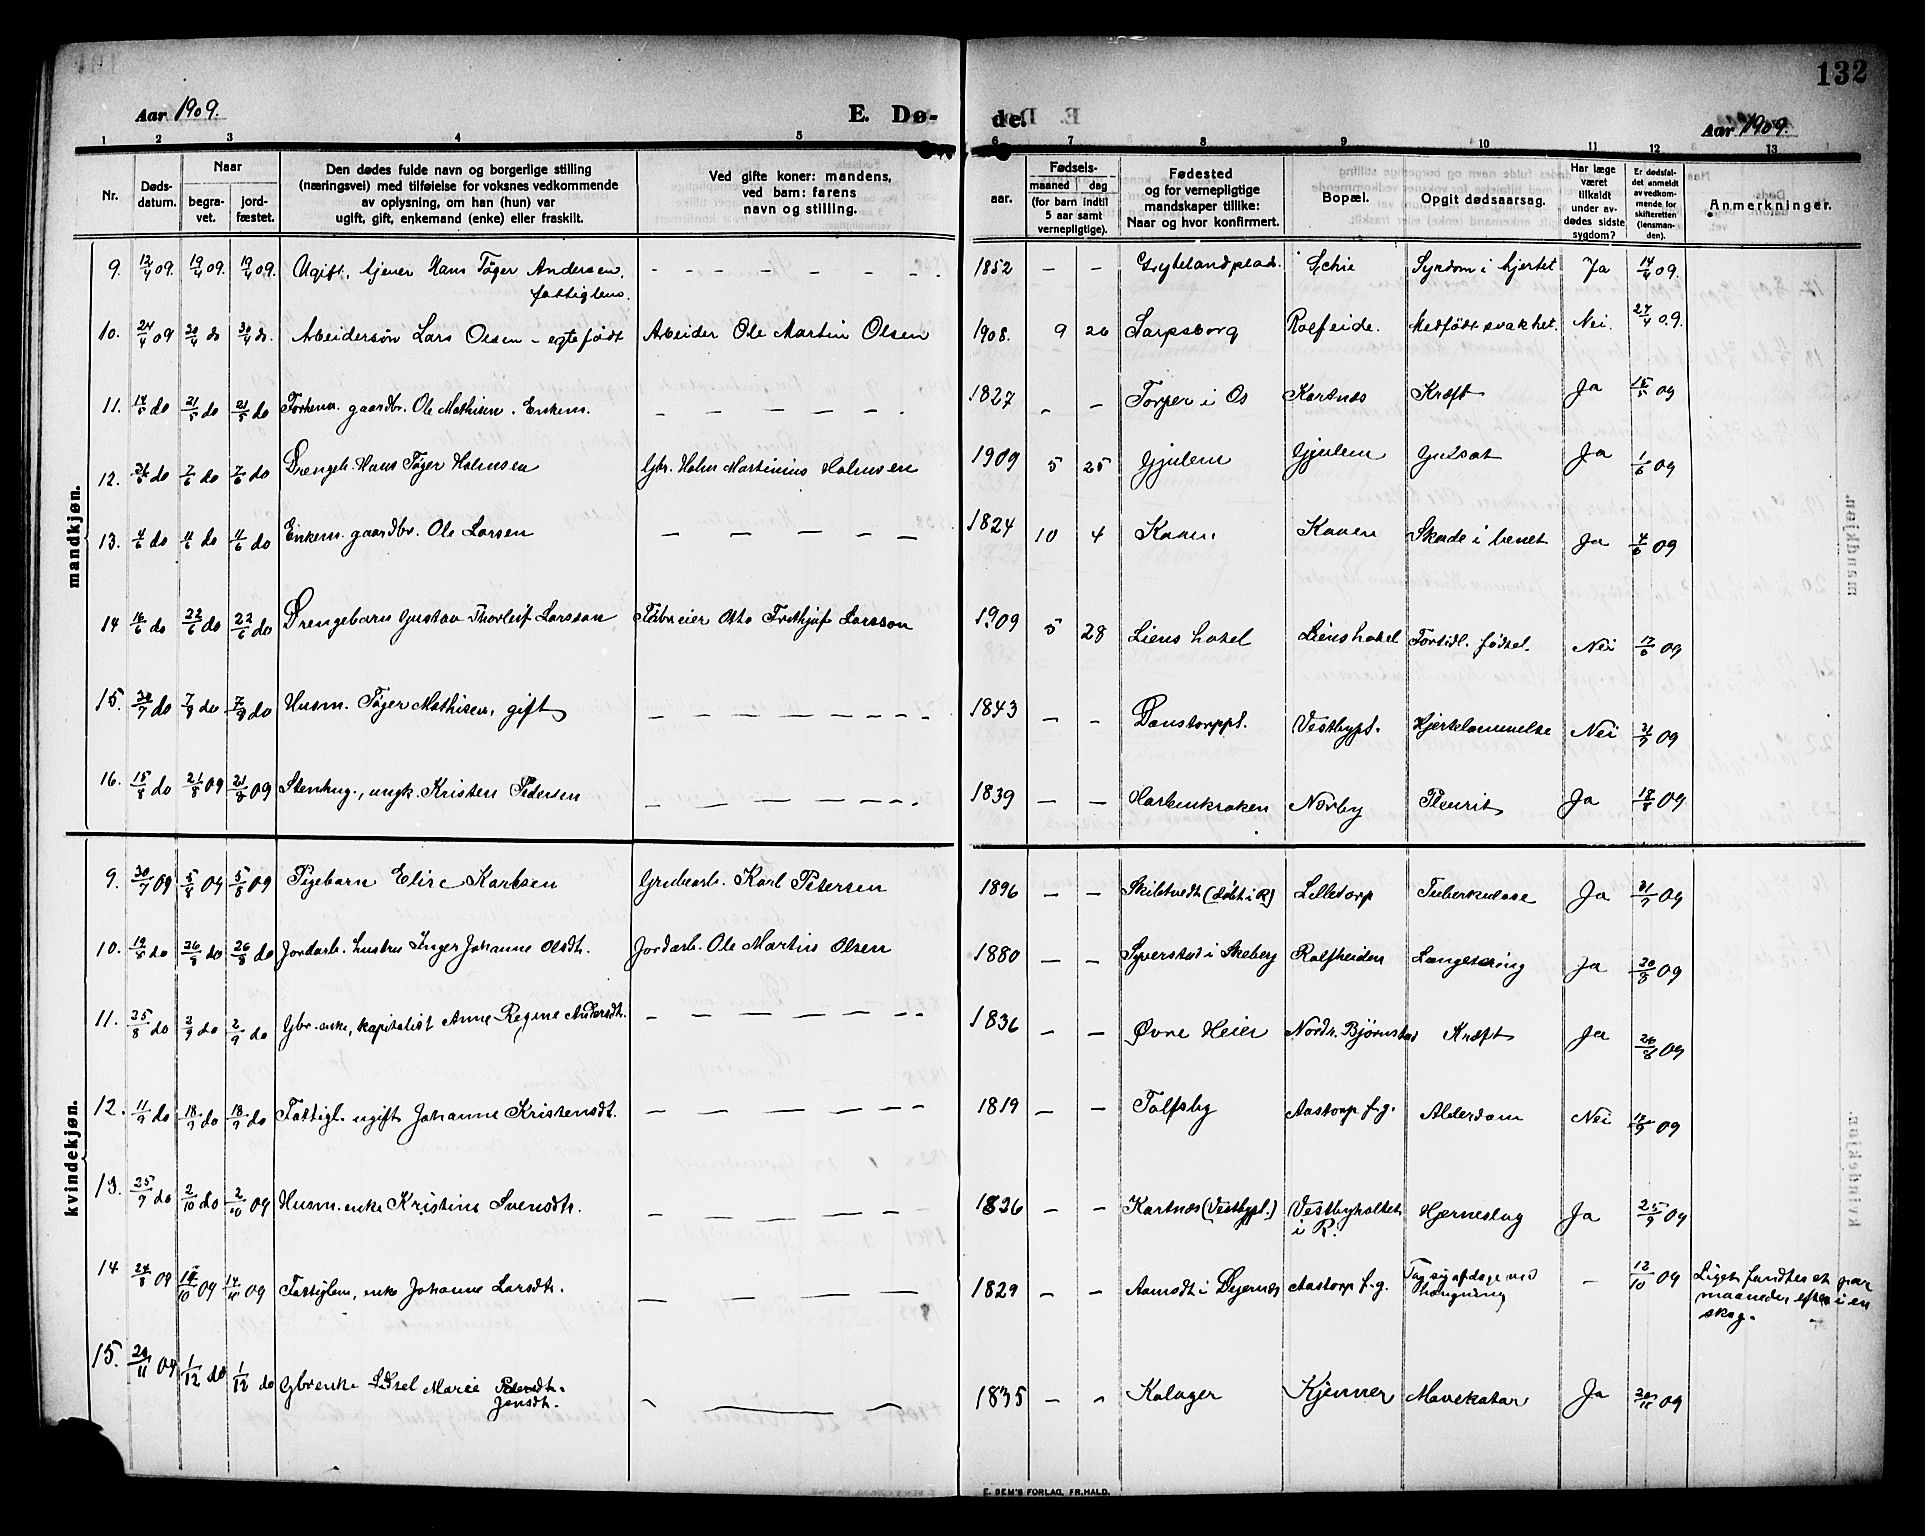 132
Aar 1909.
E. Dø-
de.
Aar 1909.
1 2 3 4 5 6 7 8 9 10 11 12 13
Nr.
Døds-
datum.
Naar
begra-
vet.
jord-
fæstet.
Den dødes fulde navn og borgerlige stilling
(næringsvei) med tilføielse for voksnes vedkommende
av oplysning, om han (hun) var
ugift, gift, enkemand (enke) eller fraskilt.
Ved gifte koner: mandens,
ved barn: farens
navn og stilling.
aar.
Fødsels-
maaned dag
(for barn indtil
5 aar samt
vernepligtige).
Fødested
og for vernepligtige
mandskaper tillike:
Naar og hvor konfirmert.
Bopæl.
Opgit dødsaarsag.
Har læge
været
tilkaldt
under av-
dødes sidste
sygdom?
Er dødsfal-
det anmeldt
av vedkom-
mende for
skifteretten
(lensman-
den).
Anmerkninger.
mandkjøn.
9. 12/4 09. 19/4 09. 19/4 09. Ugift, tjener Hans Tøger Andersen, fattiglem. - - - - - - 1852 - - Grytelandplads. Schie Sygdom i hjertet Ja 14/4 09.
10. 24/4 09 30/4 do 30/4 do. Arbeidersøn Lars Olsen - egtefødt Arbeider Ole Martin Olsen 1908. 9 26 Sarpsborg Rolfeide. Medfødt svakhet. Nei. 27/4 09.
11. 14/5 do 21/5 do 21/5 do Forhenv. gaardbr. Ole Mathisen. Enkem. - - - - - 1827 - - Torper i Os Kartnæs Kræft Ja 15/5 09
12. 26/5 do 7/6 do 7/6 do Drengeb. Hans Tøger Holmsen Gbr. Holm Martinius Holmsen 1909 5 25 Gjulem Gjulem Gulsot Ja 1/6 09
13. 4/6 do 11/6 do 11/6 do Enkem. gaardbr. Ole Larsen - - - - - 1824 10 4 Kaaen. Kaaen Skade i benet Ja 4/6 09
14 16/6 do 22/6 do 22/6 do Drengebarn Gustav Thorleif Larsson Fabreier Otto Frithjof Larsson 1909 5 28 Liens hotel Liens hotel Fortidl. fødsel. Nei 17/6 09
15. 30/7 do 7/8 do 7/8 do Husm. Tøger Mathisen, gift - - - - - - - 1843 - - Danstorppl. Vestbypl. Hjertelammelse Nei 31/7 09
16. 15/8 do 21/8 09 21/8 09 Stenhug., ungk. Kristen Pedersen - - - - - - 1839 - - Harlemkroken Nørby Pleurit Ja 18/8 09
kvindekjøn.
9. 30/7 09 5/8 09 5/8 09 Pigebarn Elise Karlsen Grubearb. Karl Petersen 1896 - - Skibtvedt (døbt i R) Lilletorp Tuberkulose Ja 31/7 09
10. 19/8 do 26/8 do 26/8 do Jordarb. hustru Inger Johanne Olsdt. Jordarb. Ole Martin Olsen 1880 - - Syverstad i Skeberg Rolfheiden Lungetæring Ja 20/8 09
11. 25/8 do 2/9 do 2/9 do Gbr. enke, kapitalist Anne Regine Andersdt. - - - - - - 1836 - - Øvre Heier Nordr. Bjørnstad Kræft Ja 26/8 09
12. 11/9 do 18/9 do 18/9 do Fattigl. ugift Johanne Kristensdt. - - - - - - 1819 - - Tolfsby Aastorp f.g. Alderdom Nei 13/9 09
13. 25/9 do 2/10 do 2/10 09 Husm. enke Kristine Svensdt. - - - - - - 1826 - - Kartnæs (Vestbypl.) Vestbyholtet i R. Hjerneslag Ja 25/9 09
14 24/8 09 14/10 09 14/10 09 Fattiglem, enke Johanne Larsdt. - - - - - 1829 - - Aamodt i Dypernæs Aastorp f.g. Tog sig afdage ved hængning - 12/10 09 Liget fandtes et par
maaneder efter i en
skog.
15. 20/11 09 1/12 do 1/12 do Gbrenke Sidsel Marie Pedersdt. Jonsdt. - - - 1835 - - Kolager Kjenner Mavekatar Ja 20/11 09
E. SEM'S FORLAG, FR.HALD.